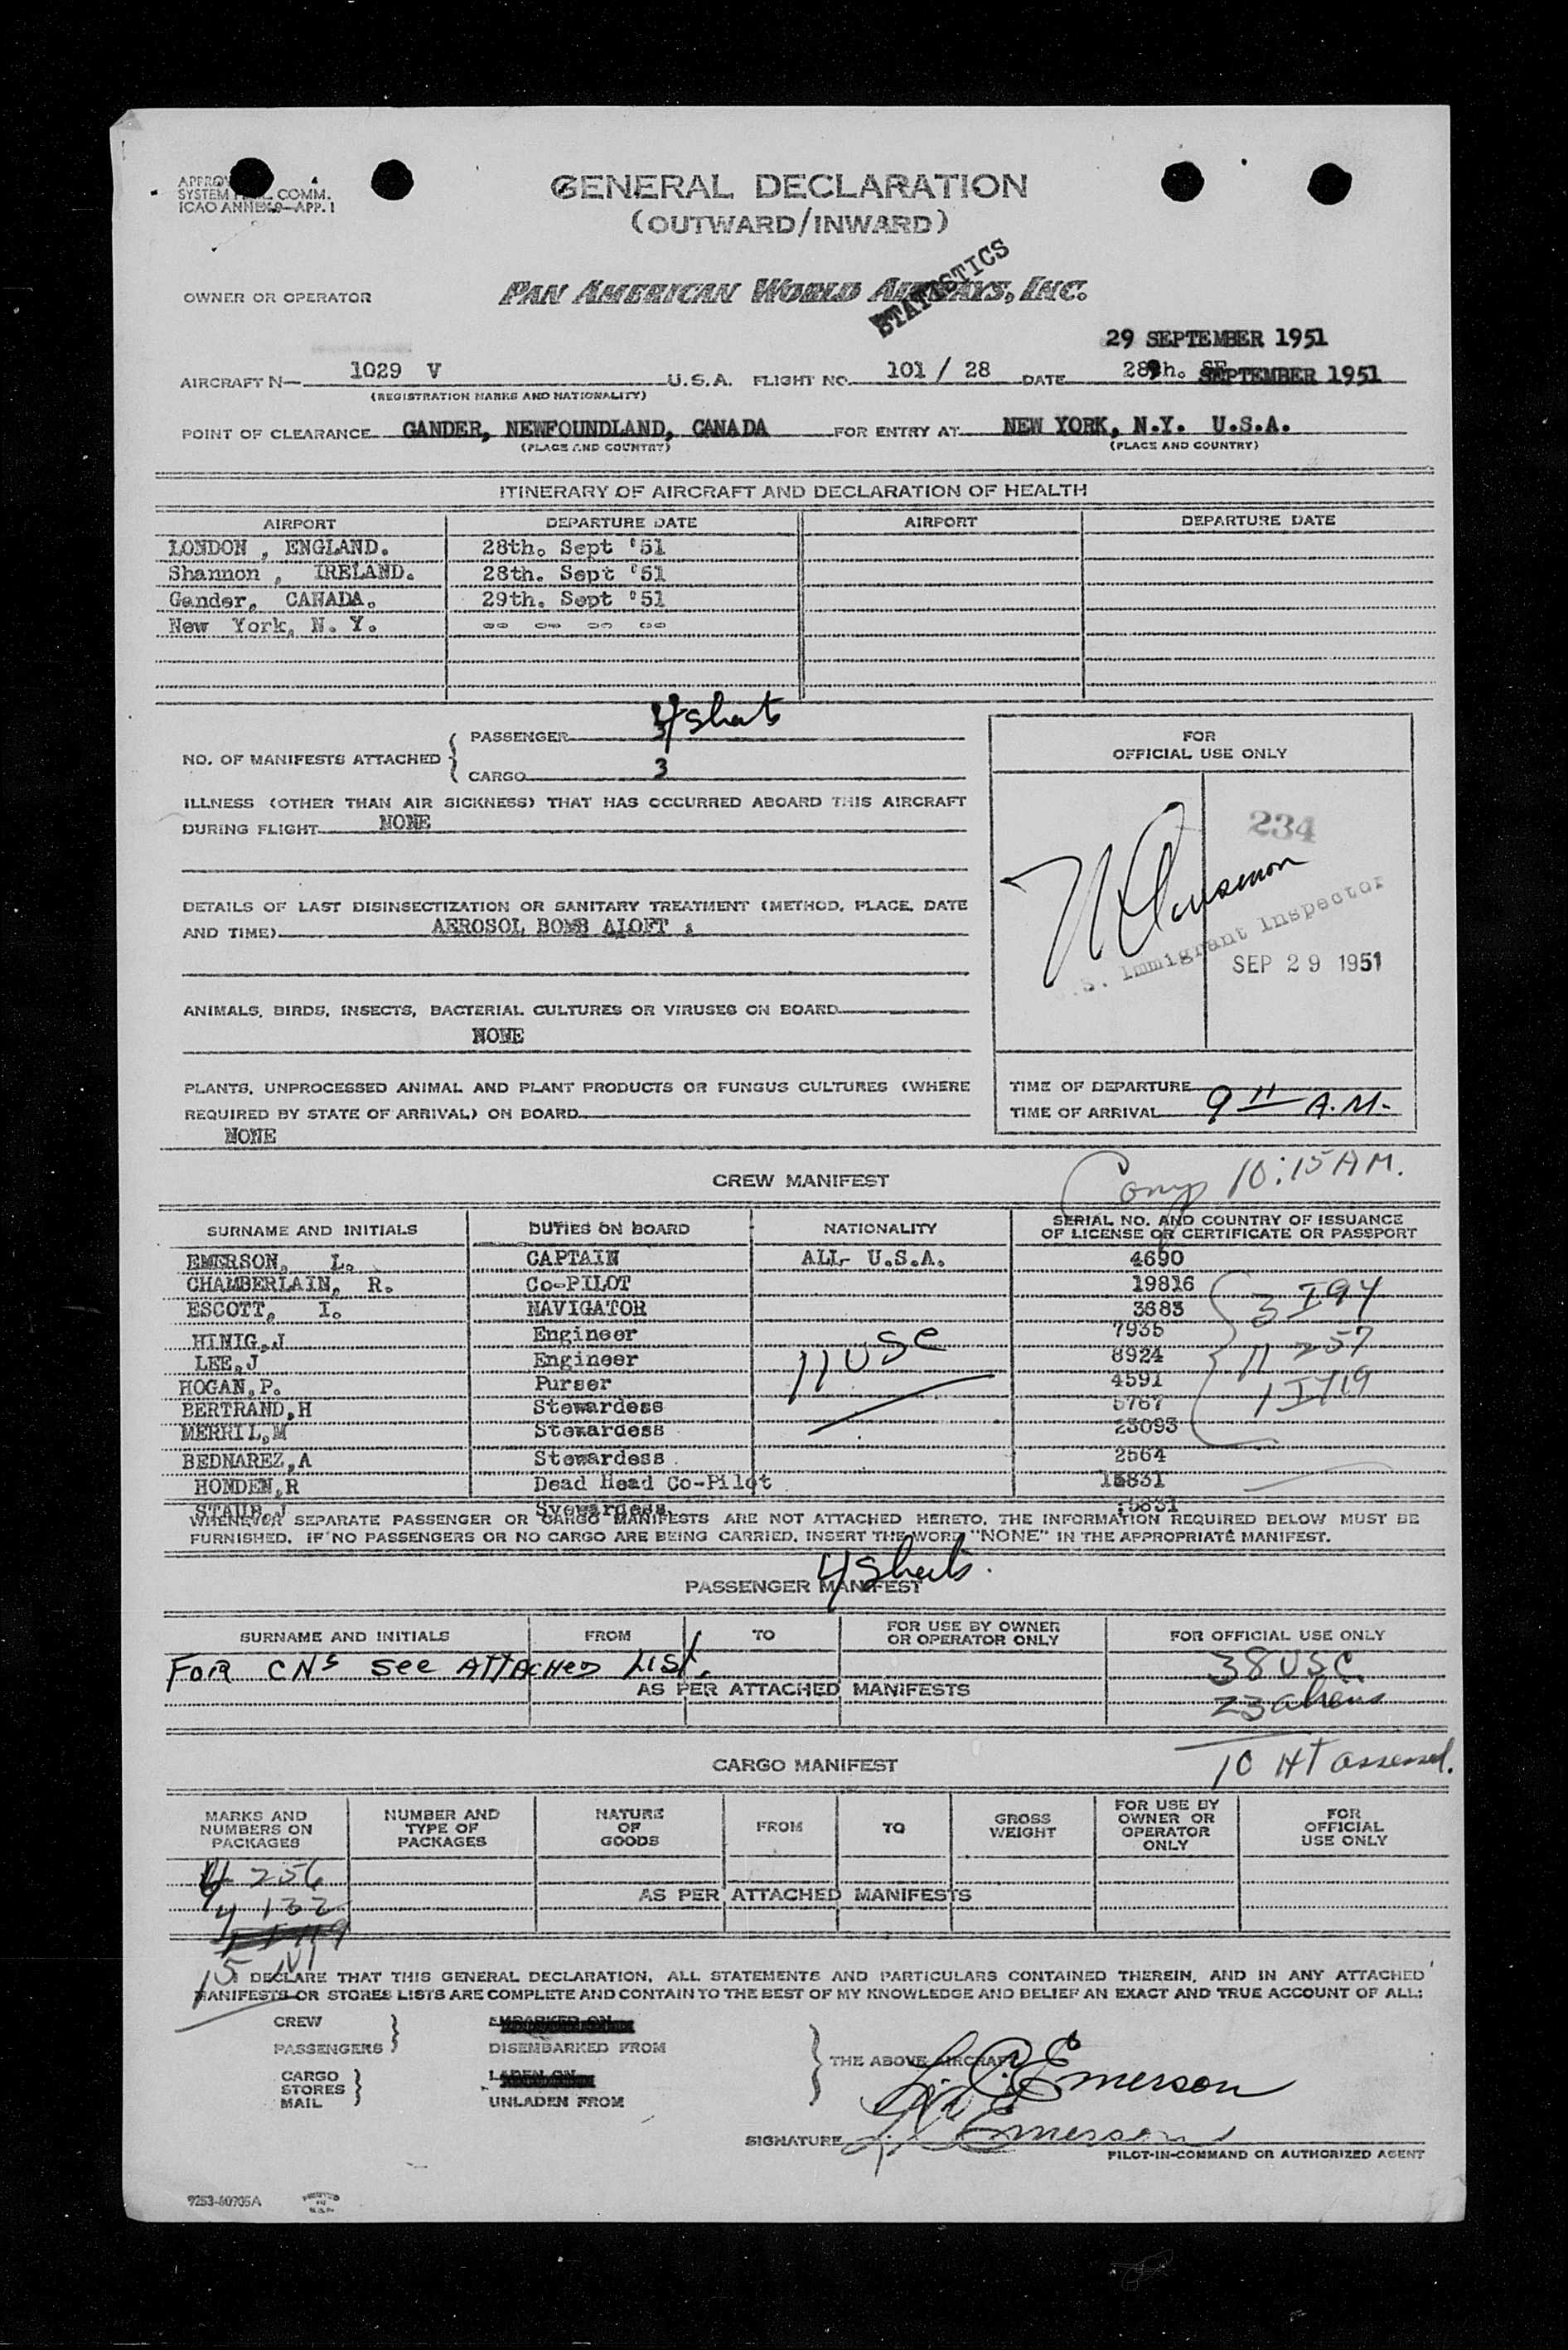 GENERAL DECLARATION
(OUTWARD/INWARD)
SYSTEM COMM.
ICAO ANNEX 9—APP. 1
OWNER OR OPERATOR PAN AMERICAN WORLD AIRWAYS, INC.
STATISTICS
29 SEPTEMBER 1951
AIRCRAFT N— 1029 V U.S.A. FLIGHT NO. 101 / 28 DATE 28th. SEPTEMBER 1951
(REGISTRATION MARKS AND NATIONALITY)
POINT OF CLEARANCE GANDER, NEWFOUNDLAND, CANADA FOR ENTRY AT NEW YORK, N.Y. U.S.A.
(PLACE AND COUNTRY) (PLACE AND COUNTRY)
ITINERARY OF AIRCRAFT AND DECLARATION OF HEALTH
AIRPORT DEPARTURE DATE AIRPORT DEPARTURE DATE
LONDON , ENGLAND. 28th. Sept '51
Shannon , IRELAND. 28th. Sept '51
Gander, CANADA. 29th. Sept '51
New York, N. Y. -- -- -- --
NO. OF MANIFESTS ATTACHED
PASSENGER 4 sheets
CARGO 3
ILLNESS (OTHER THAN AIR SICKNESS) THAT HAS OCCURRED ABOARD THIS AIRCRAFT
DURING FLIGHT NONE
DETAILS OF LAST DISINSECTIZATION OR SANITARY TREATMENT (METHOD, PLACE, DATE
AND TIME) AEROSOL BOMB ALOFT :
ANIMALS, BIRDS, INSECTS, BACTERIAL CULTURES OR VIRUSES ON BOARD
NONE
PLANTS, UNPROCESSED ANIMAL AND PLANT PRODUCTS OR FUNGUS CULTURES (WHERE
REQUIRED BY STATE OF ARRIVAL) ON BOARD
NONE
FOR
OFFICIAL USE ONLY
234
U.S. Immigrant Inspector
SEP 29 1951
TIME OF DEPARTURE
TIME OF ARRIVAL 9 11 A.M.
Comp 10:15 AM.
CREW MANIFEST
SURNAME AND INITIALS DUTIES ON BOARD NATIONALITY SERIAL NO. AND COUNTRY OF ISSUANCE
OF LICENSE OR CERTIFICATE OR PASSPORT
EMERSON, L. CAPTAIN ALL- U.S.A. 4690
CHAMBERLAIN, R. Co-PILOT 19816
ESCOTT, I. NAVIGATOR 3683
HINIG,J Engineer 7935
LEE,J Engineer 8924
HOGAN,P. Purser 4591
BERTRAND,H Stewardess 5767
MERRIL,M Stewardess 23093
BEDNAREZ,A Stewardess 2564
HONDEN,R Dead Head Co-Pilot 15831
STAUB,J Stewardess
11 USC
3 I 94
11 257
1 I 419
WHENEVER SEPARATE PASSENGER OR CARGO MANIFESTS ARE NOT ATTACHED HERETO, THE INFORMATION REQUIRED BELOW MUST BE
FURNISHED. IF NO PASSENGERS OR NO CARGO ARE BEING CARRIED, INSERT THE WORD "NONE" IN THE APPROPRIATE MANIFEST.
4 sheets.
PASSENGER MANIFEST
SURNAME AND INITIALS FROM TO FOR USE BY OWNER
OR OPERATOR ONLY FOR OFFICIAL USE ONLY
FOR CNs See ATTACHED LIST. 38 USC
AS PER ATTACHED MANIFESTS 23 aliens
CARGO MANIFEST 10 HT assessed.
MARKS AND
NUMBERS ON
PACKAGES
NUMBER AND
TYPE OF
PACKAGES
NATURE
OF
GOODS
FROM
TO
GROSS
WEIGHT
FOR USE BY
OWNER OR
OPERATOR
ONLY
FOR
OFFICIAL
USE ONLY
4 256
4 132
AS PER ATTACHED MANIFESTS
15
I DECLARE THAT THIS GENERAL DECLARATION, ALL STATEMENTS AND PARTICULARS CONTAINED THEREIN, AND IN ANY ATTACHED
MANIFESTS OR STORES LISTS ARE COMPLETE AND CONTAIN TO THE BEST OF MY KNOWLEDGE AND BELIEF AN EXACT AND TRUE ACCOUNT OF ALL:
CREW
PASSENGERS
EMBARKED ON
DISEMBARKED FROM
CARGO
STORES
MAIL
LADEN ON
UNLADEN FROM
THE ABOVE AIRCRAFT
L. C. Emerson
SIGNATURE L. C. Emerson
PILOT-IN-COMMAND OR AUTHORIZED AGENT
9253-60705A
PRINTED
IN
U.S.A.